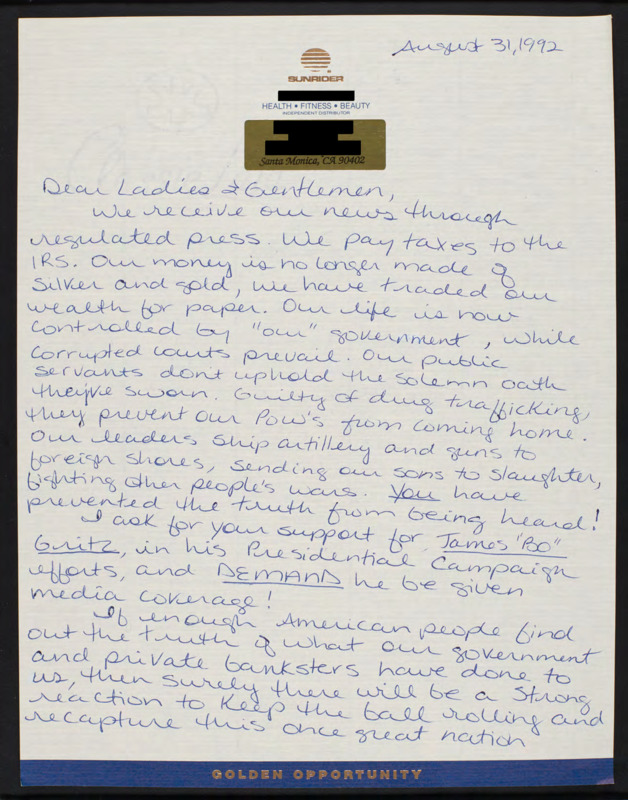 August 31, 1992
SUNRIDER
HEALTH • FITNESS • BEAUTY
INDEPENDENT DISTRIBUTOR
Santa Monica, CA 90402
Dear Ladies & Gentlemen,
We receive our news through
regulated press. We pay taxes to the
IRS. Our money is no longer made of
silver and gold, we have traded our
wealth for paper. Our life is now
controlled by "our" government, while
corrupted courts prevail. Our public
servants don't uphold the solemn oath
they've sworn. Guilty of drug trafficking,
they prevent our POW's from coming home.
Our leaders ship artillery and guns to
foreign shores, sending our sons to slaughter,
fighting other people's wars. You have
prevented the truth from being heard!
I ask for your support for James "Bo"
Gritz, in his Presidential Campaign
efforts, and DEMAND he be given
media coverage!
If enough American people find
out the truth of what our government
and private banksters have done to
us, then surely there will be a strong
reaction to keep the ball rolling and
recapture this once great nation
GOLDEN OPPORTUNITY